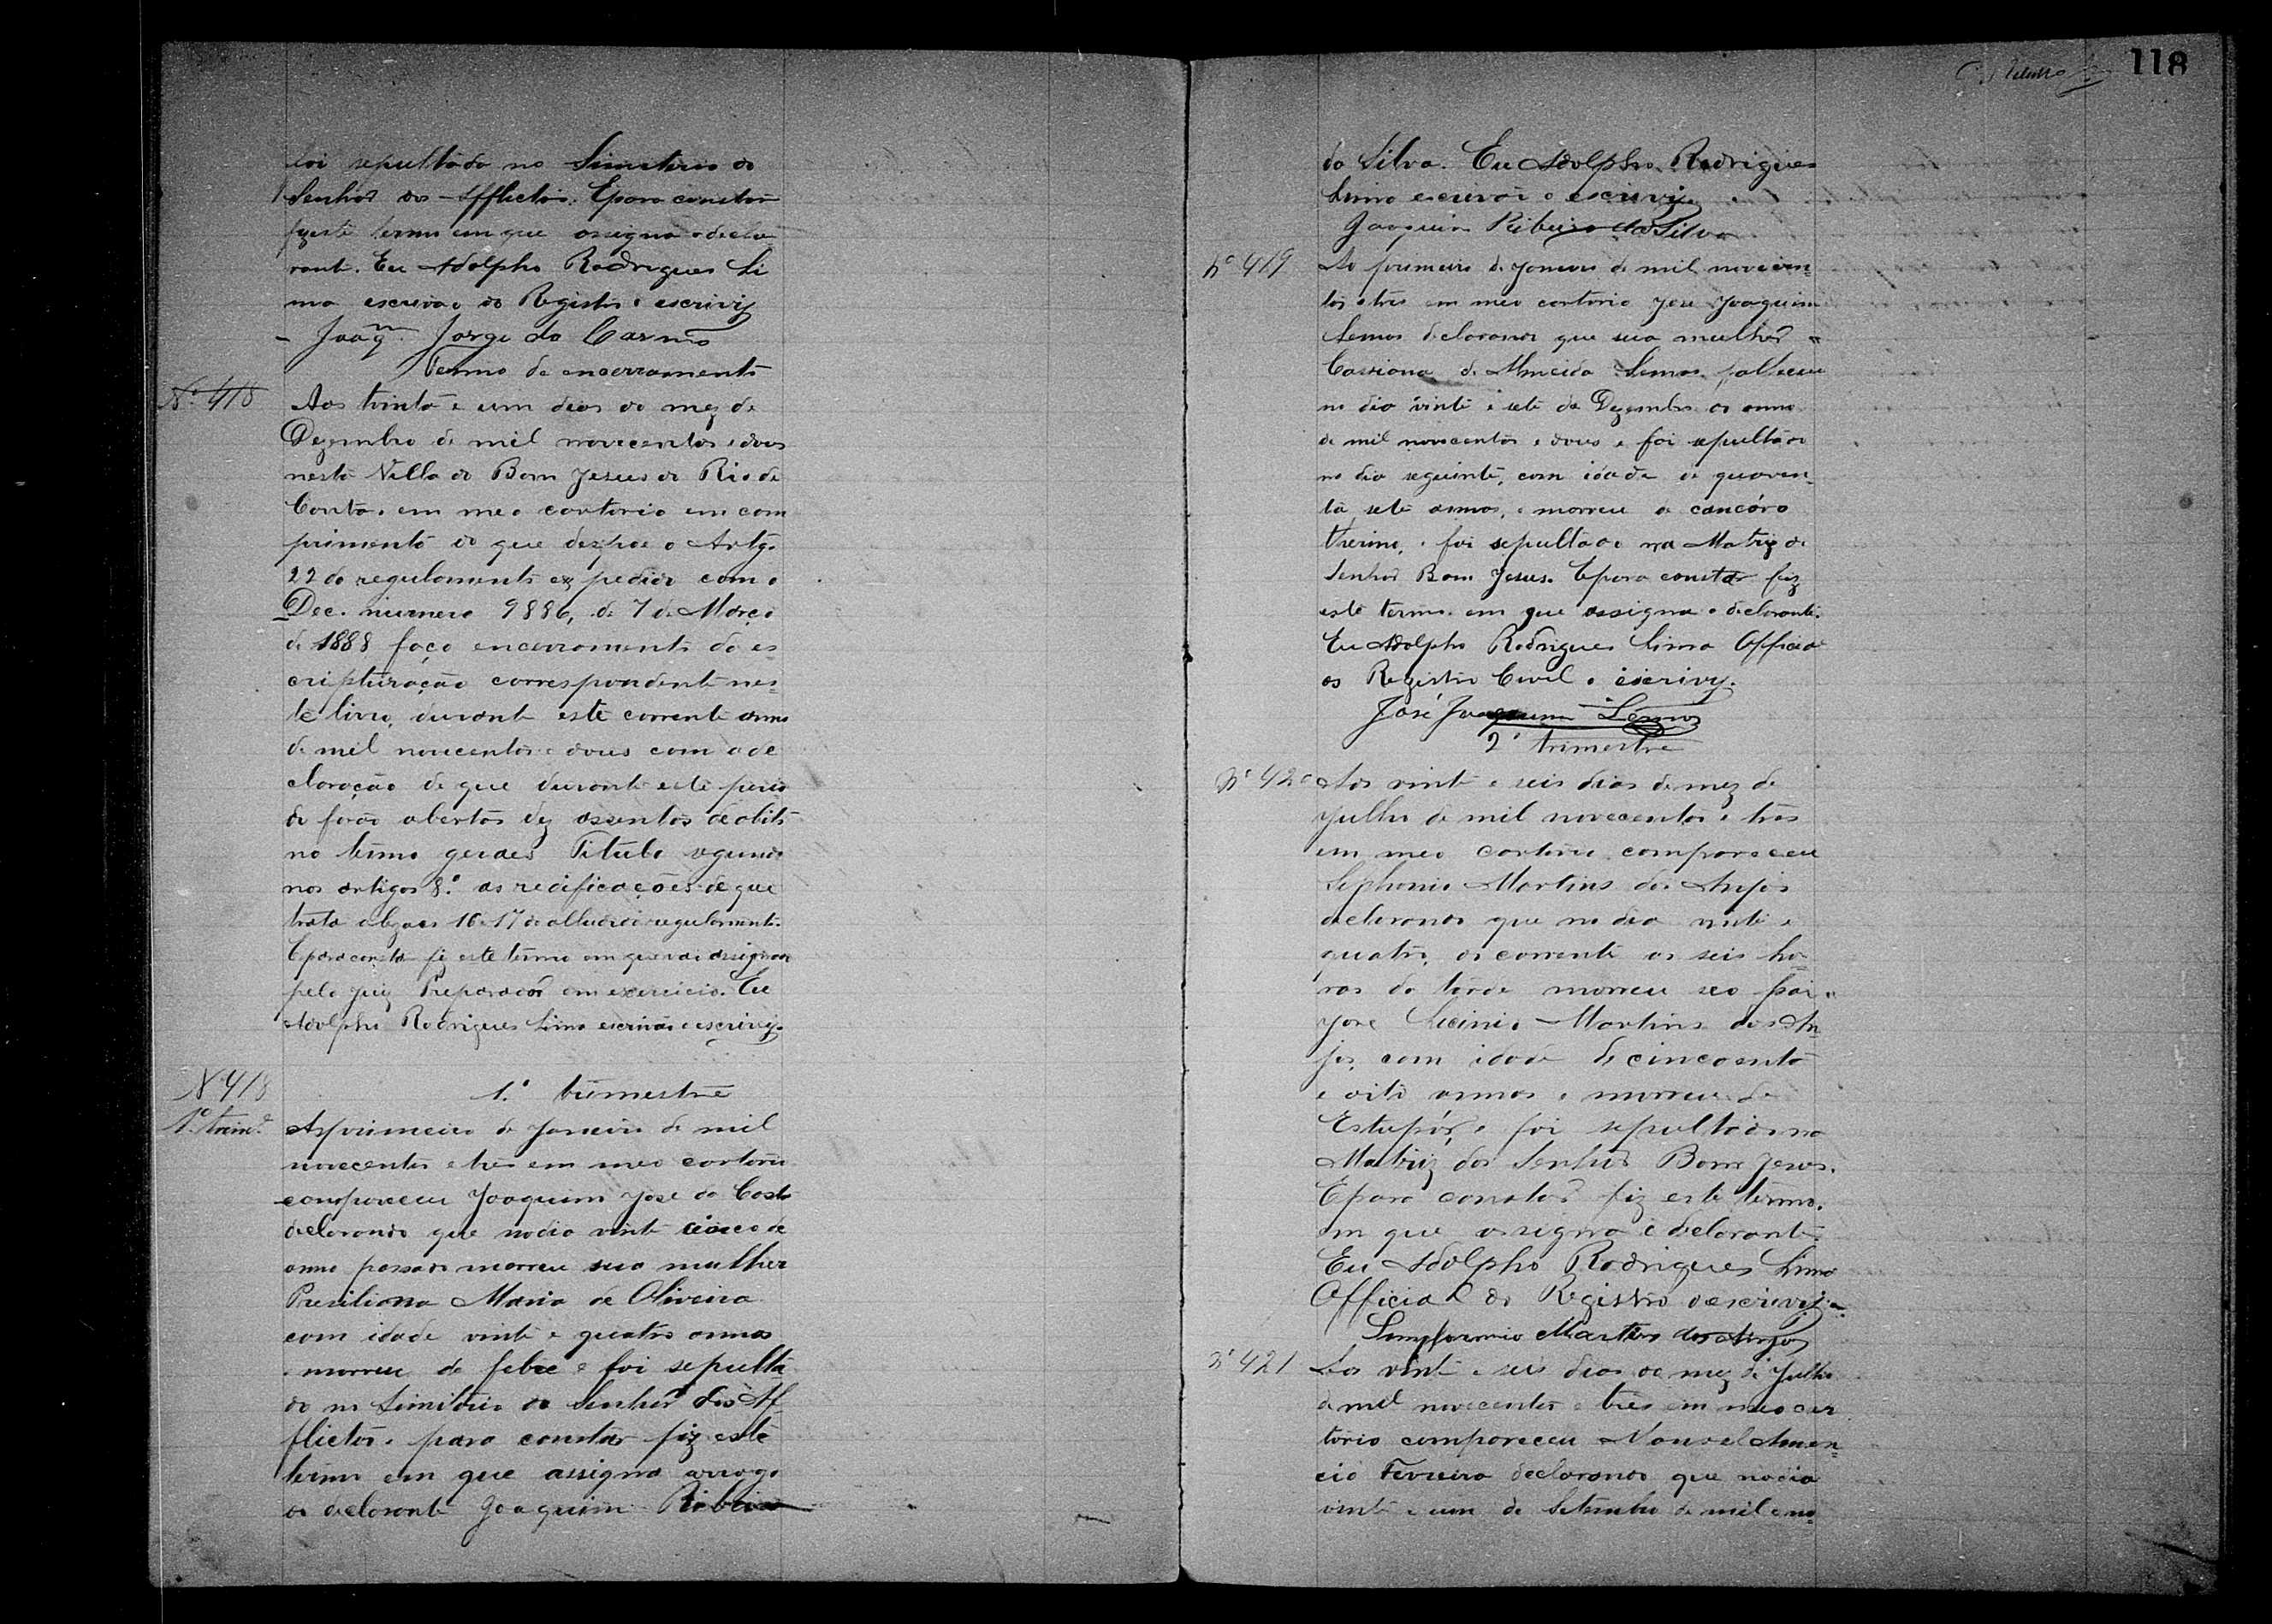 foi sepultado no Simiterio do
Senhor dos Afflictos. Epara constar
fiz este termo em que assigna o decla
rante. Eu Adolpho Rodrigues Li
ma escrivao do Registro o escriviz
Joaqm Jorge do Carmo
Termo de encerramento
Aos trinta e um dias do mez de
Dezembro de mil novecentos e dous
nesta Villa do Bom Jesus do Rio de
Contas em meo cartorio em com
primento do que despoe o Artgo
22 do regulamento expedido com o
Dec. numero 9886, de 7 de Março
de 1888 faço encerramento da es
cripturação correspondente nes=
te livro, durante este corrente anno
de mil novecentos e dous com a de
claração de que durante este perio
do forão abertos dez assentos de obito
no termo geraes Titulo segundo
nos artigos 8.º as recificações de que
trata 16 e 17 do alludido regulamento.
Epara constar fiz este termo em que vai assignado
pelo juiz Preparador em exercicio. Eu
Adolpho Rodrigues Lima escrivão o escriviz.
Nº 418
1.º trimestre
1.º trime.
Ao primeiro de Janeiro de mil
novecentos e tres em meo cartorio
compareceu Joaquim Jose da Costa
declarando que no dia vinte cinco de
anno passado morreu sua mulher
Presiliana Maria de Oliveira
com idade vinte e quatro annos
morreu de febre e foi sepulta
do no Simiterio do Senhor dos Af
flictos. para constar fiz este
termo em que assigna arrogo
do declarante Joaquim Ribeiro
118
da Silva. Eu Adolpho Rodrigues
Lima escrivão o escriviz
Joaquim Ribeiro da Silva
Nº 419
Ao primeiro de Janeiro de mil novecen=
tos e tres em meo cartorio Jose Joaquim
Lemos declarando que sua mulher
Cassiana de Almeida Lemos falleceu
no dia vinte e sete de Dezembro do anno
de mil novecentos e dous e foi sepultado
no dia seguinte, com idade de quaren=
ta sete annos, e morreu de cancóro
therino, e foi sepultado na Matriz do
Senhor Bom Jesus. Epara constar fiz
este termo em que assigna o declarante.
Eu Adolpho Rodrigues Lima Official
do Registro Civil o escrivy.
José Joaquim Lemos
2º trimestre
Nº 420
Aos vinte e seis dias do mez de
Julho de mil novecentos e tres
em meo cartorio compareceu
Siphonio Martins dos Anjos
declarando que no dia vinte e
quatro, do corrente as seis ho=
ras da tarde morreu seo pai
Jose Licinio Martins dos An=
jos, com idade de cincoenta
e oito annos e morreu de
Estupór, e foi sepultado na
Matriz dos Senhor Bom Jesus.
Epara constar fiz este termo.
em que assigna o declarante.
Eu Adolpho Rodrigues Lima
Official do Registro o escriviz.
Simphornio Martins dos Anjos
Nº 421
Aos vinte e seis dias do mez de Julho
de mil novecentos e tres em meo car
torio compareceu Manoel Aman=
cio Ferreira declarando que no dia
vinte e um de Setembro de mil e no=